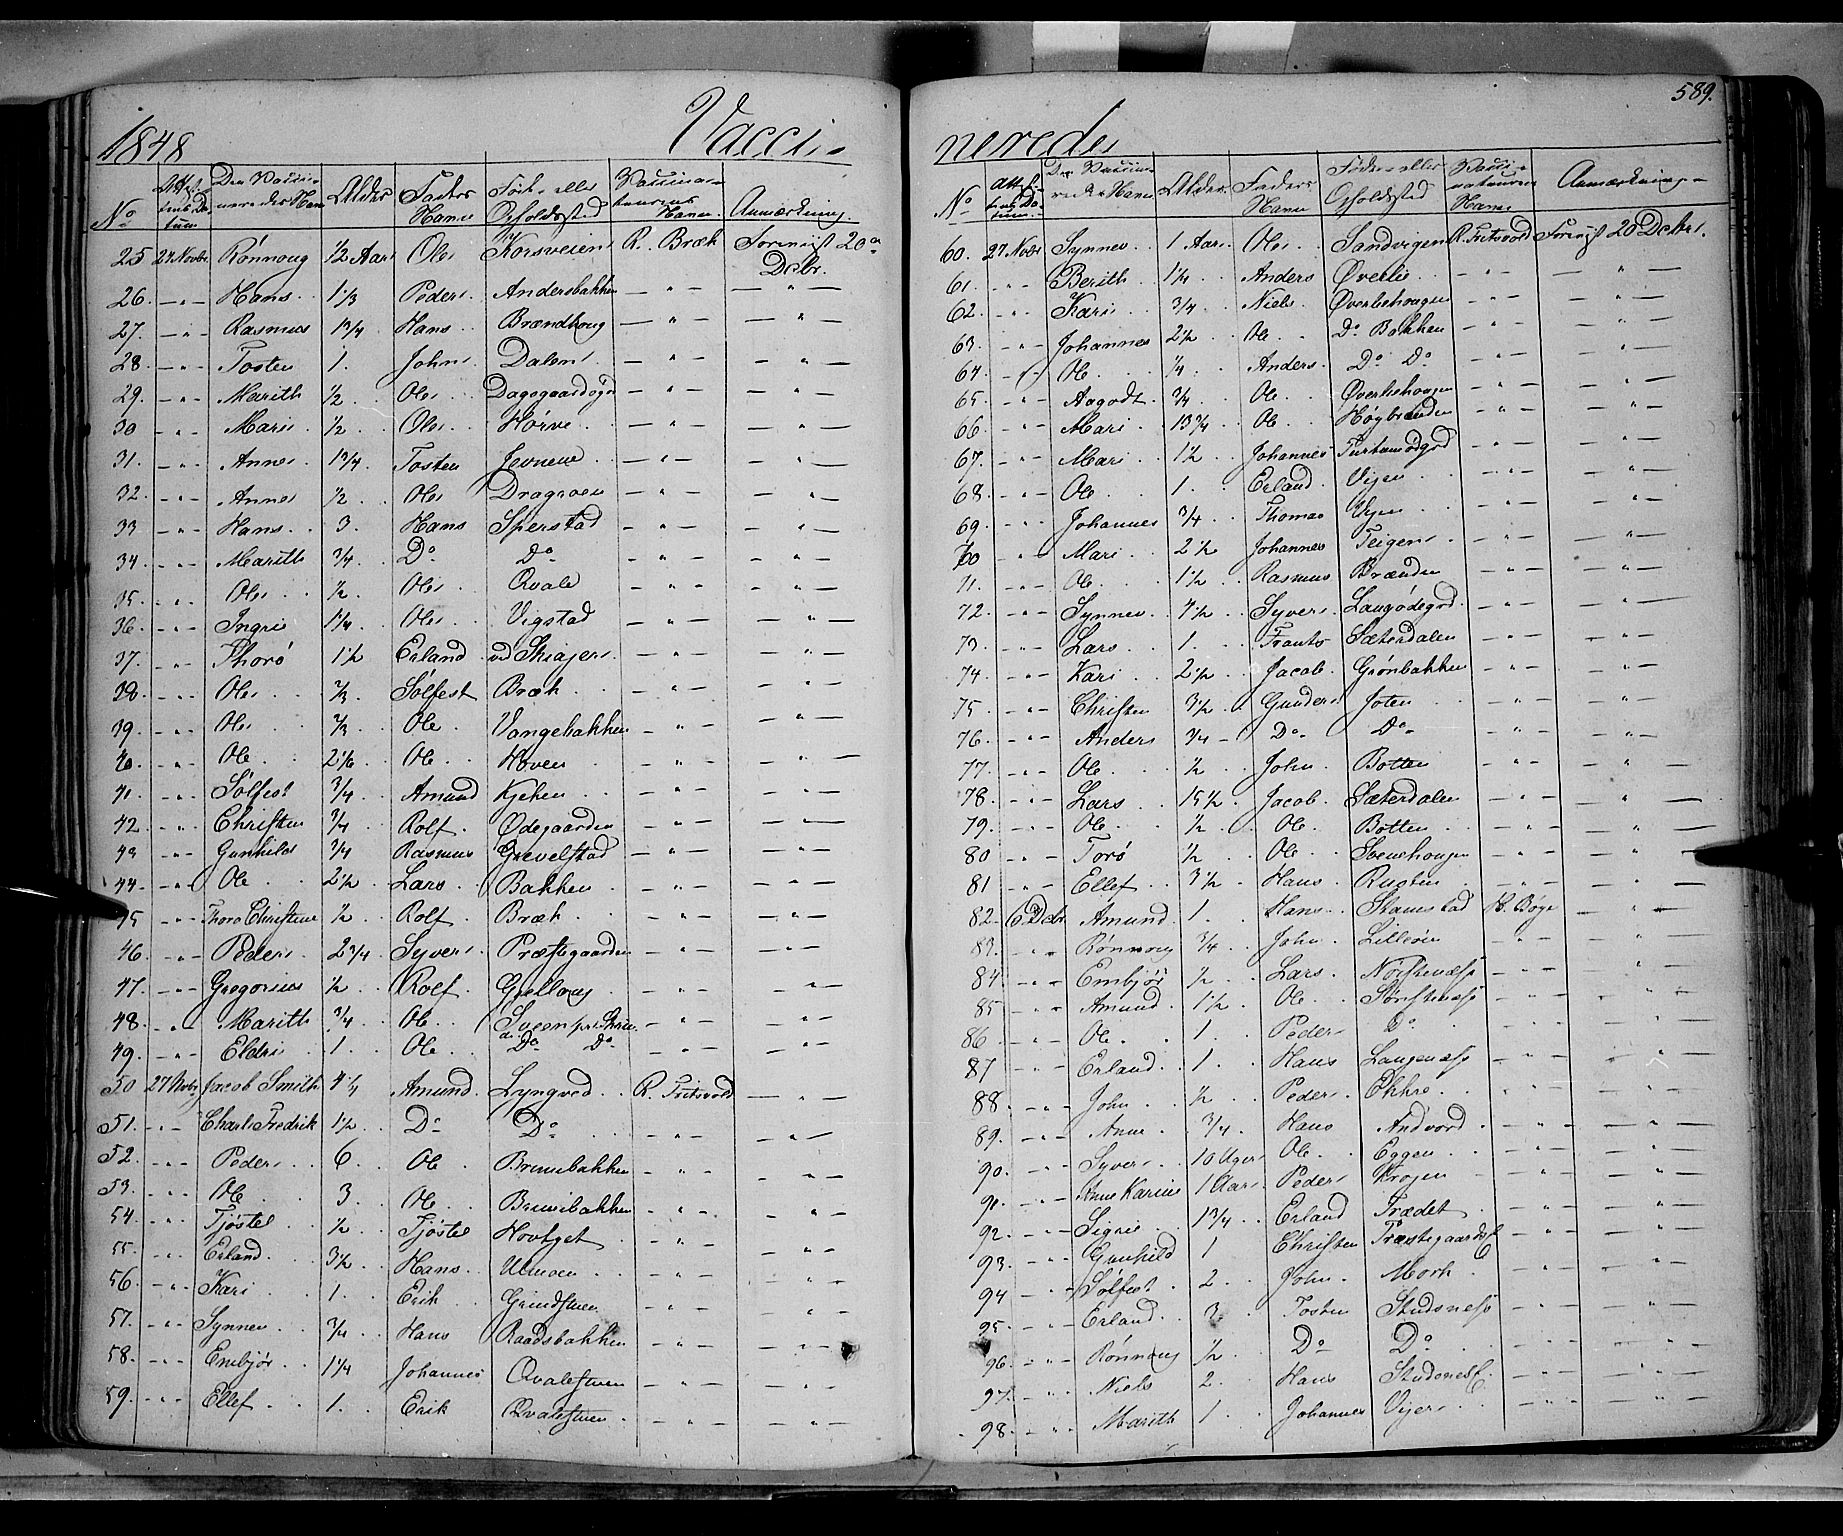 1848 Vacci-
No Attestens Datum Den Vaccineredes Navn Alder Faders Navn Føde- eller Opholdssted Vaccinateurens Navn Anmærkning.
25 27 Novbr. Rønnoug ½ Aar Ole Korsveien R. Bræk Foreviist 20de Decbr.
26. -"- Hans 1⅓ Peder Andersbakken -"- -"-
27. -"- Rasmus 1¾ Hans Brændhoug -"- -"-
28 -"- Tosten 1. John Dalen -"- -"-
29. -"- Marith ½ Ole Dagsgaardsøgn -"- -"-
30 -"- Mari ½ Ole Hørve -"- -"-
31. -"- Anne 1¾ Tosten Jevnene -"- -"-
32. -"- Anne ½ Ole Dragroen -"- -"-
33 -"- Hans 3. Hans Sperstad -"- -"-
34. -"- Marith ¾ Do Do -"- -"-
35. -"- Ole ½ Ole Qvale -"- -"-
36. -"- Ingri 1¼ Ole Vigstad -"- -"-
37. -"- Thorø 1½ Erland ved Skiager -"- -"-
38. -"- Ole ⅔ Sølfest Bræk -"- -"-
39. -"- Ole ⅔ Ole Vangebakken -"- -"-
40. -"- Ole 2⅙ Ole Hoven -"- -"-
41. -"- Sølfest ¾ Amund Kjeken -"- -"-
42. -"- Christen ¾ Rolf Ødegaarden -"- -"-
43 -"- Gunhild ¾ Rasmus Grevelstad -"- -"-
44. -"- Ole 2½ Lars Bakken -"- -"-
45 -"- Thora Christine ½ Rolf Bræk -"- -"-
46. -"- Peder 2¾ Syver Præstegaarden -"- -"-
47. -"- Gregorius ½ Rolf Gjelloug -"- -"-
48. -"- Marith ¾ Ole Sveen -"- -"-
49. -"- Eldri 1. Ole Do Do -"- -"-
50 27 Novbr. Jacob Smith 4½ Amund Lyngved R. Fritsvold -"-
51. -"- Charl: Fredrik 1½ Do Do -"-
52. -"- Peder 6 Ole Bruuebakken -"- -"-
53. -"- Ole 3. Ole Bruuebakken -"- -"-
54. -"- Tjøstel ½ Tjøstel Hovtget -"- -"-
55. -"- Erland 3½ Hans Ulmoen -"- -"-
56. -"- Kari 1. Erik Grindstuen -"- -"-
57. -"- Synnev ¾ Hans Raadsbakken -"- -"-
58. -"- Embjør 1¼ Johannes Qvalestuen -"- -"-
59. -"- Ellef 1. Erik Qvalestuen -"- -"-
589.
nerede
No Attestens Datum Den Vaccineredes Navn Alder Faders Navn Føde- eller Opholdssted Vaccinateurens Navn Anmærkning-
60. 27 Novbr Synnev 1 Aar Ole Sandvigen R. Fritsvold Foreviist 20 Decbr.
61. -"- Berith 1¼ Anders Øverlie -"- -"-
62. -"- Kari ¾ Niels Øverliehougen -"- -"-
63. -"- Johannes 2½ Ole Do Bakken -"- -"-
64. -"- Ole ¼ Anders Do Do -"- -"-
65. -"- Aagodt ¾ Ole Øverliehougen -"- -"-
66. -"- Mari 13¾ Ole Høybrænden -"- -"-
67. -"- Mari 1½ Johannes -"- -"-
68. -"- Ole 1. Erland Vijen -"- -"-
69. -"- Johannes ¾ Thomas Vijen -"- -"-
70 -"- Mari 2½ Johannes Teigen -"- -"-
71. -"- Ole 1½ Rasmus Brænden -"- -"-
72. -"- Synnev 4½ Syver Langødegrd. -"- -"-
73. -"- Lars 1. Frants Sæterdalen -"- -"-
74. -"- Kari 2½ Jacob Grønbakken -"- -"-
75. -"- Christen 3½ Gunder Joten -"- -"-
76. -"- Anders ¾ Do Do -"- -"-
77. -"- Ole ½ John Botten -"- -"-
78. -"- Lars 15½ Jacob Sæterdalen -"- -"-
79. -"- Ole ½ Ole Botten -"- -"-
80 -"- Torø ½ Ole Svenehougen -"- -"-
81 -"- Ellef 3½ Hans Rusten -"- -"-
82. 6 Decbr Amund 1. Hans Stamstad H. Bøye -"-
83. -"- Rønnoug ¾ John Lilleøen -"- -"-
84 -"- Embjør ½ Lars Nørstenæss -"- -"-
85 -"- Amund 1½ Ole Sørstenæss -"- -"-
86 -"- Ole 1. Peder Do -"- -"-
87 -"- Erland 1 Hans Langenæss -"- -"-
88. -"- John ½ Peder Ekkre -"- -"-
89. -"- Anne ¾ Hans Andvord -"- -"-
90. -"- Syver 10 Uger Ole Eggen -"- -"-
91. -"- Anne Karine 1 Aar Peder Krogen -"- -"-
92. -"- Sigrie 1¾ Erland Trædet -"- -"-
93. -"- Gunhild 1 Christen Præstegaards -"- -"-
94 -"- Sølfest 2. John Mork -"- -"-
95. -"- Erland 3. Tosten Studsnæss -"- -"-
96. -"- Rønnoug ½ Do Do -"- -"-
97. -"- Niels 2. Hans Studsnes -"- -"-
98. -"- Marith 1. Johannes Vijer -"- -"-